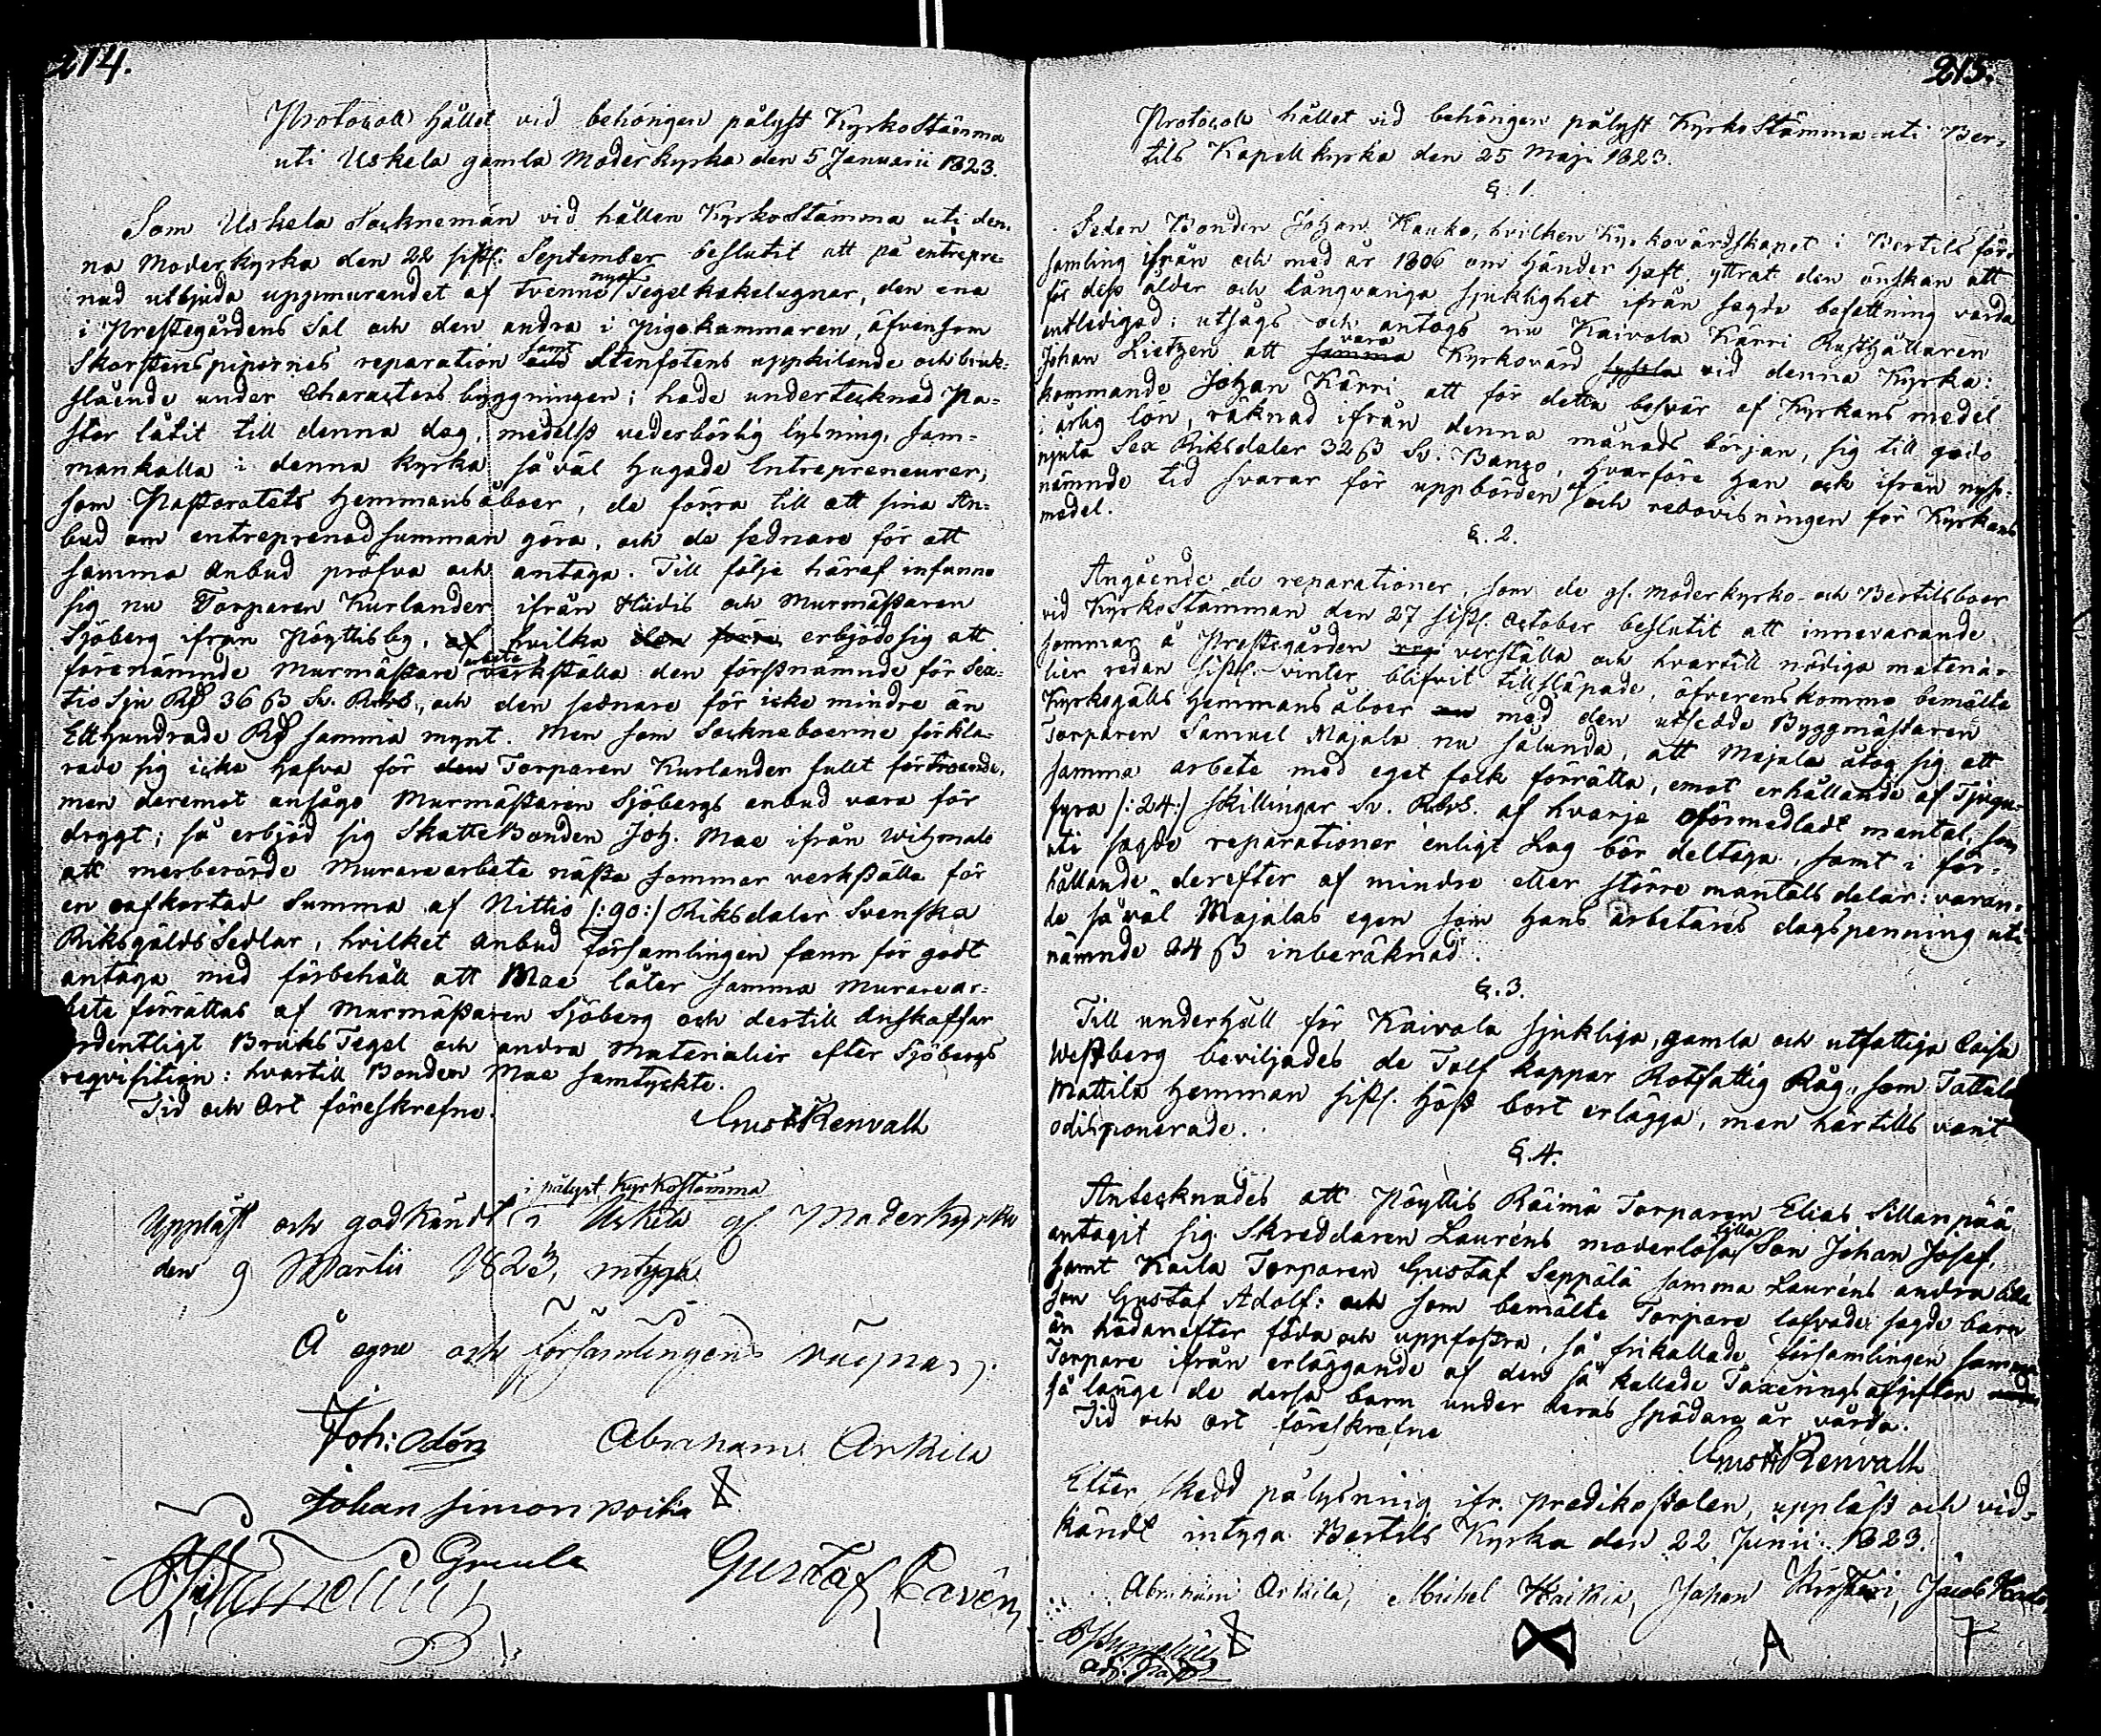 214.
Protocoll hållet vid behörigen pålyst KyrkoStämma
uti Uskela gamla Moderkyrka den 5 Januarii 1823.
Som Uskela Socknemän vid hållen KyrkoStämma uti den-
na Moderkyrka den 22 sistl. September beslutit att på entrepre-
nad utbjuda uppmurandet af Tvenne nya Tegelkakelugnar, den ena
i Prestegårdens Sal och den andra i Pigokammaren, äfvensom
Skorstenspipornes reparation samt Stenfotens uppkilande och bruk-
slående under Characters byggningen; hade undertecknad Pa-
stor låtit till denna dag, medelst vederbörlig lysning, sam-
mankalla i denna Kyrka så väl hugade Entrepreneurer,
som Pastoratets Hemmansåboer, de förra till att sina An-
bud om entreprenadsumman göra, och de sednare för att
samma anbud pröfva och antaga. Till följe häraf infunno
sig nu Torparen Kurlander ifrån Hüdis och Murmästaren
Sjöberg ifrån Pöytisby, af hvilka den förra erbjödo sig att
förenämnde Murmästare arbete verkställa den förstnämnde för Sex-
tio Sju Rd 36 ß Sv. RGS., och den sednare för icke mindre än
Etthundrade Rd samma mynt. Men som Sockneboerne förkla-
rade sig icke hafva för den Torparen Kurlander fullt förtroende,
men deremot ansågo Murmästaren Sjöbergs anbud vara för
drygt; så erbjöd sig SkatteBonden Joh. Mae ifrån Wihmalo
att merberörde Murarearbete nästa sommar verkställa för
en oafkortad Summa af Nittio /:90:/ Riksdaler Svenska
RiksgäldsSedlar, hvilket anbud Församlingen fann för godt
antaga med förbehåll att Mae låter samma murarear-
bete förrättas af Murmästaren Sjöberg och dertill anskaffar
ordentligt BruksTegel och andra Materialier efter Sjöbergs
reqvisition: hvartill Bonden Mae samtyckte.
Tid och Ort föreskrefne.
Gust Renvall
i pålyst Kyrkostämma
Uppläst och godkändt i Uskela gl Moderkyrka
den 9 Martii 1823, intyga
Å egne och Församlingens vägnar
Joh: Odén Abraham Arkila
Johan Simon Poikia
Greula Gustaf Cavén
215.
Protocoll hållet vid behörigen pålyst KyrkoStämma uti Ber-
tils Kapellkyrka den 25 Maji 1823.
§. 1
Seden Bonden Johan Kauko, hvilken Kyrkovärdskapet i Bertils för-
samling ifrån och med år 1806 om händer haft, yttrat den önskan att
för dess ålder och långvariga sjuklighet ifrån sagde befattning varda
entledigad; utsågs och antogs nu Kaivola Kärri Rusthållaren
Johan Lietzen att samma vara Kyrkovärd syssla vid denna Kyrka:
kommande Johan Kärri att för detta besvär af Kyrkans medel
i årlig lön, räknad ifrån denna månads början, sig till godo
njuta Sex Riksdaler 32 ß Sv. Banco, hvarföre han ock ifrån nyss-
nämnde tid svarar för uppbörden af och redovisningen för Kyrkans
medel.
§. 2.
Angående de reparationer, som de gl. Moderkyrko- och Bertilsboer
vid KyrkoStämman den 27 sistl. October beslutit att innevarande
sommar å Prestegården verställa och hvartill nödiga materia-
lier redan sistl. vinter blifvit tillsläpade, öfverenskommo bemälte
Kyrkogälls Hemmansåboer nu med den utsedde Byggmästaren
Torparen Samuel Majala nu sålunda, att Majala åtog sig att
samma arbete med eget folk förrätta, emot erhållande af Tjugu-
fyra /:24:/ Skillingar Sv. RGS. af hvarje oförmedladt mantal, som
uti sagde reparationer enligt Lag bör deltaga, samt i för-
hållande derefter af mindre eller större mantals delar: varan-
de så väl Majalas egen som hans arbetares dagspenning uti
nämnde 24 ß inberäknad.
§. 3.
Till underhåll för Kaivola sjukliga, gamla och utfattiga Caisa
Westberg beviljades de Tolf kappar Rotfattig Råg, som Tattila
Mattila Hemman sistl. höst bort erlägga, men härtills varit
odisponerade.
§. 4.
Antecknades att Pöytis Räimä Torparen Elias Sillanpää
antagit sig Skreddaren Lauréns moderlösa lilla Son Johan Josef,
samt Kaila Torparen Gustaf Seppälä samma Lauréns andra lilla
son Gustaf Adolf: och som bemälte Torpare lofvade sagde barn
än hädanefter föda och uppfostra, så frikallade församlingen samma
Torpare ifrån erläggande af den så kallade Taxeringsafgiften
så länge de dessa barn under deras spädare år vårda.
Tid och ort föreskrefne
Gust Renvall
Efter skedd pålysning ifr. predikostolen, uppläst och vid-
kändt intyga Bertils Kyrka den 22 Junii 1823.
Abraham Arkila, Michel Kaikia, Johan, Jacob